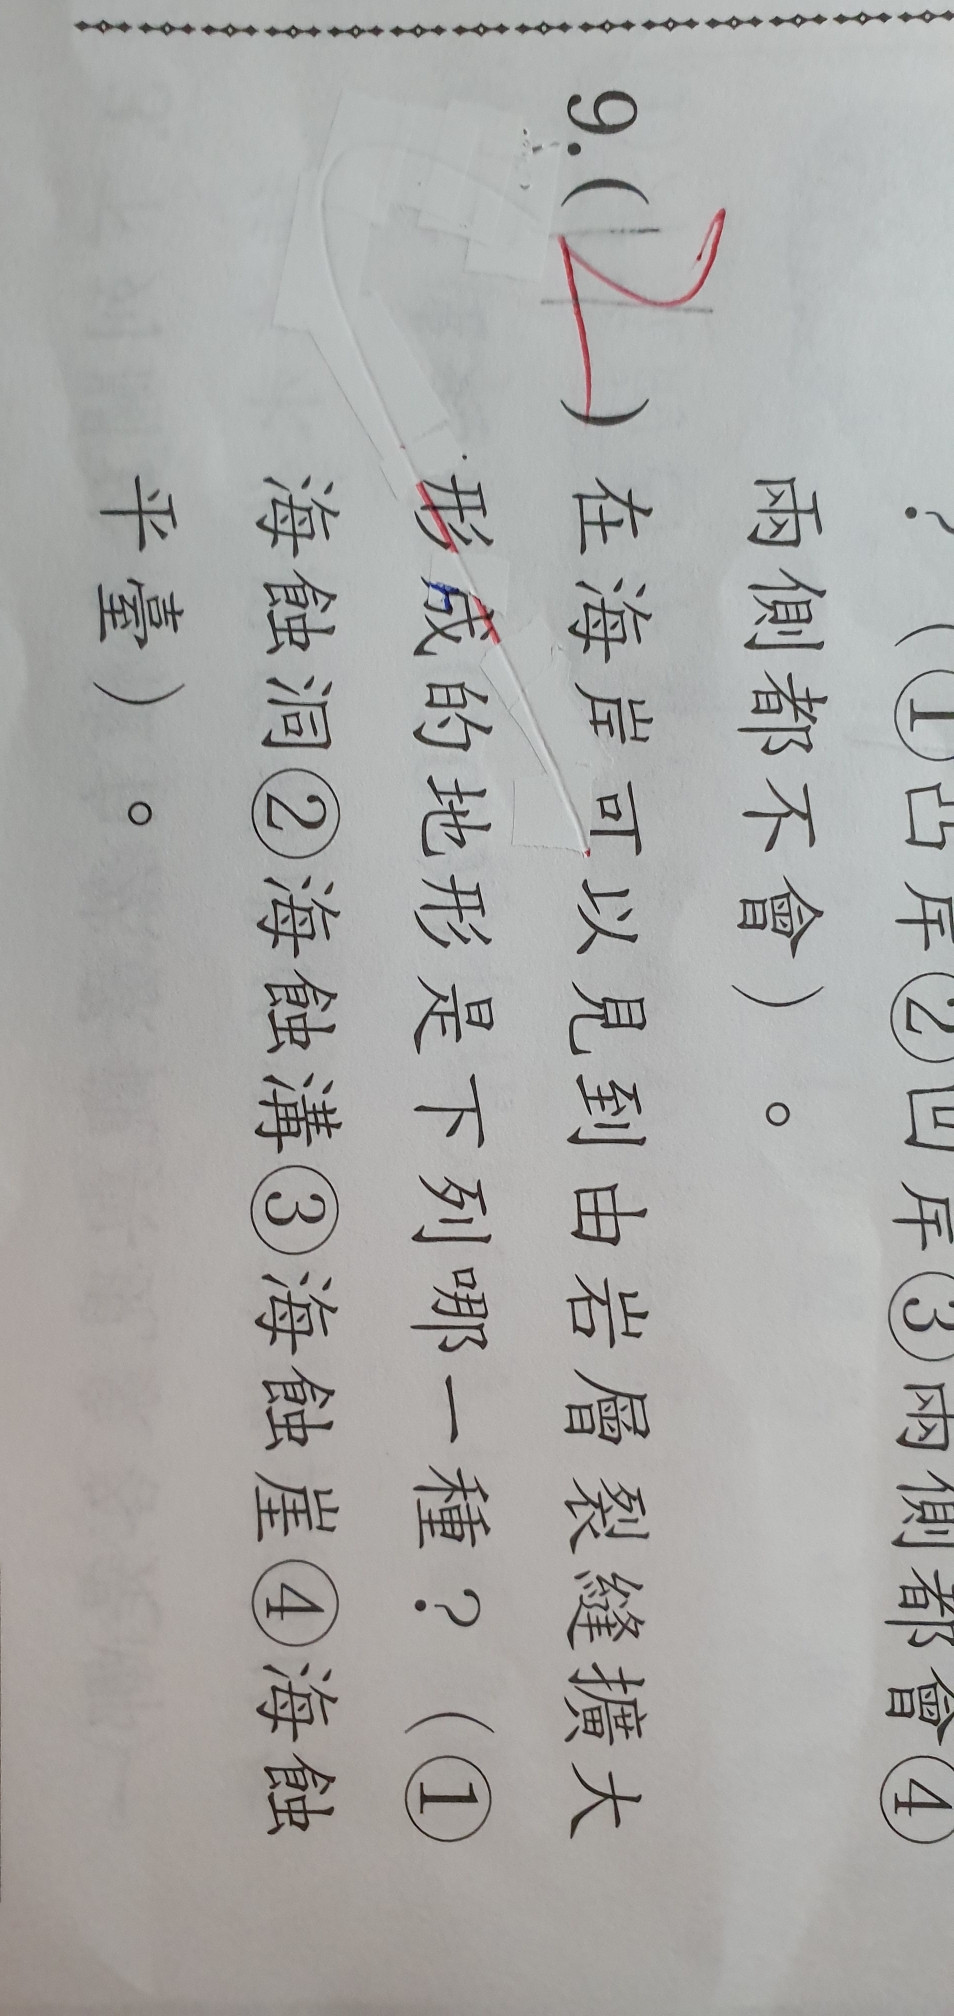 ？（①凸岸②凹岸③兩側都會④
兩側都不會）。
9.( 2 ) 在海岸可以見到由岩層裂縫擴大
形成的地形是下列哪一種？（①
海蝕洞②海蝕溝③海蝕崖④海蝕
平臺）。